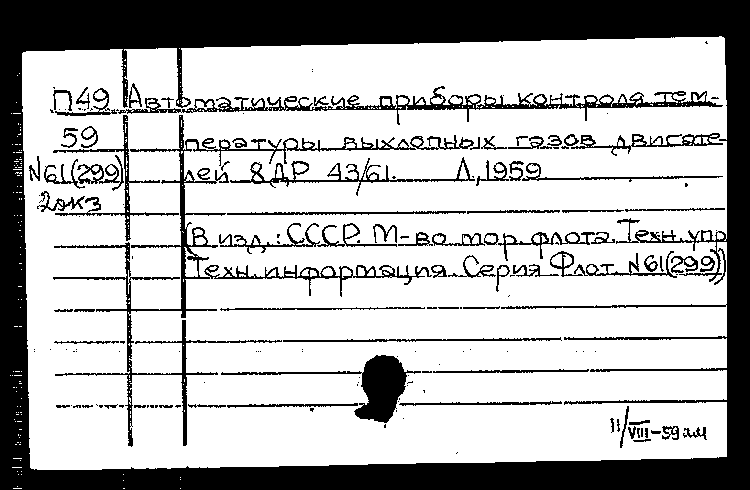 П49 Автоматические приборы контроля тем-
59 пературы выхлопных газов двигате-
N61(299) лей 8ДР 43/61. Л, 1959
2экз
(В изд.: СССР. М-во мор. флота. Техн. упр
Техн. информация. Серия Флот. N61(299))
11/VIII-59